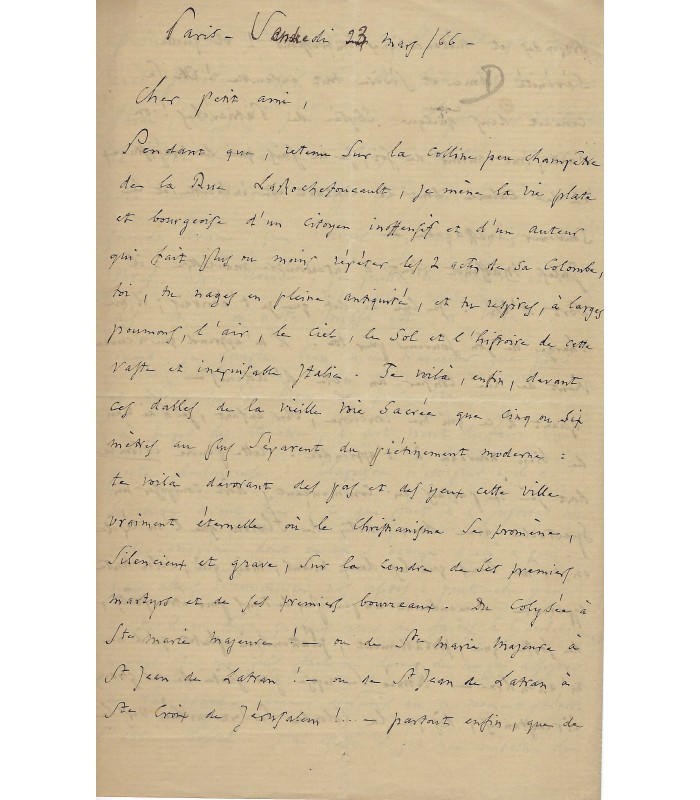 Paris - Vendredi 23 mars /66 -
Cher petit ami,
Pendant que, retenu sur la colline peu champêtre
de la Rue LaRochefoucault, je mène la vie plate
et bourgeoise d'un citoyen inoffensif et d'un auteur
qui fait plus ou moins répéter les 2 actes de sa Colombe,
toi, tu nages en pleine antiquité, et tu respires, à larges
poumons, l'air, le ciel, le sol et l'histoire de cette
vaste et inépuisable Italie. Te voilà, enfin, devant
ces dalles de la vieille voie sacrée que cinq ou six
mètres au plus séparent du piétinement moderne :
te voilà dévorant des pas et des yeux cette ville
vraiment éternelle où le Christianisme se promène,
silencieux et grave, sur la cendre de ses premiers
martyrs et de ses premiers bourreaux. Du Colysée à
Ste Marie Majeure ! - ou de Ste Marie Majeure à
St Jean de Latran ! - ou de St Jean de Latran à
Ste Croix de Jérusalem !.. - partout enfin, que de